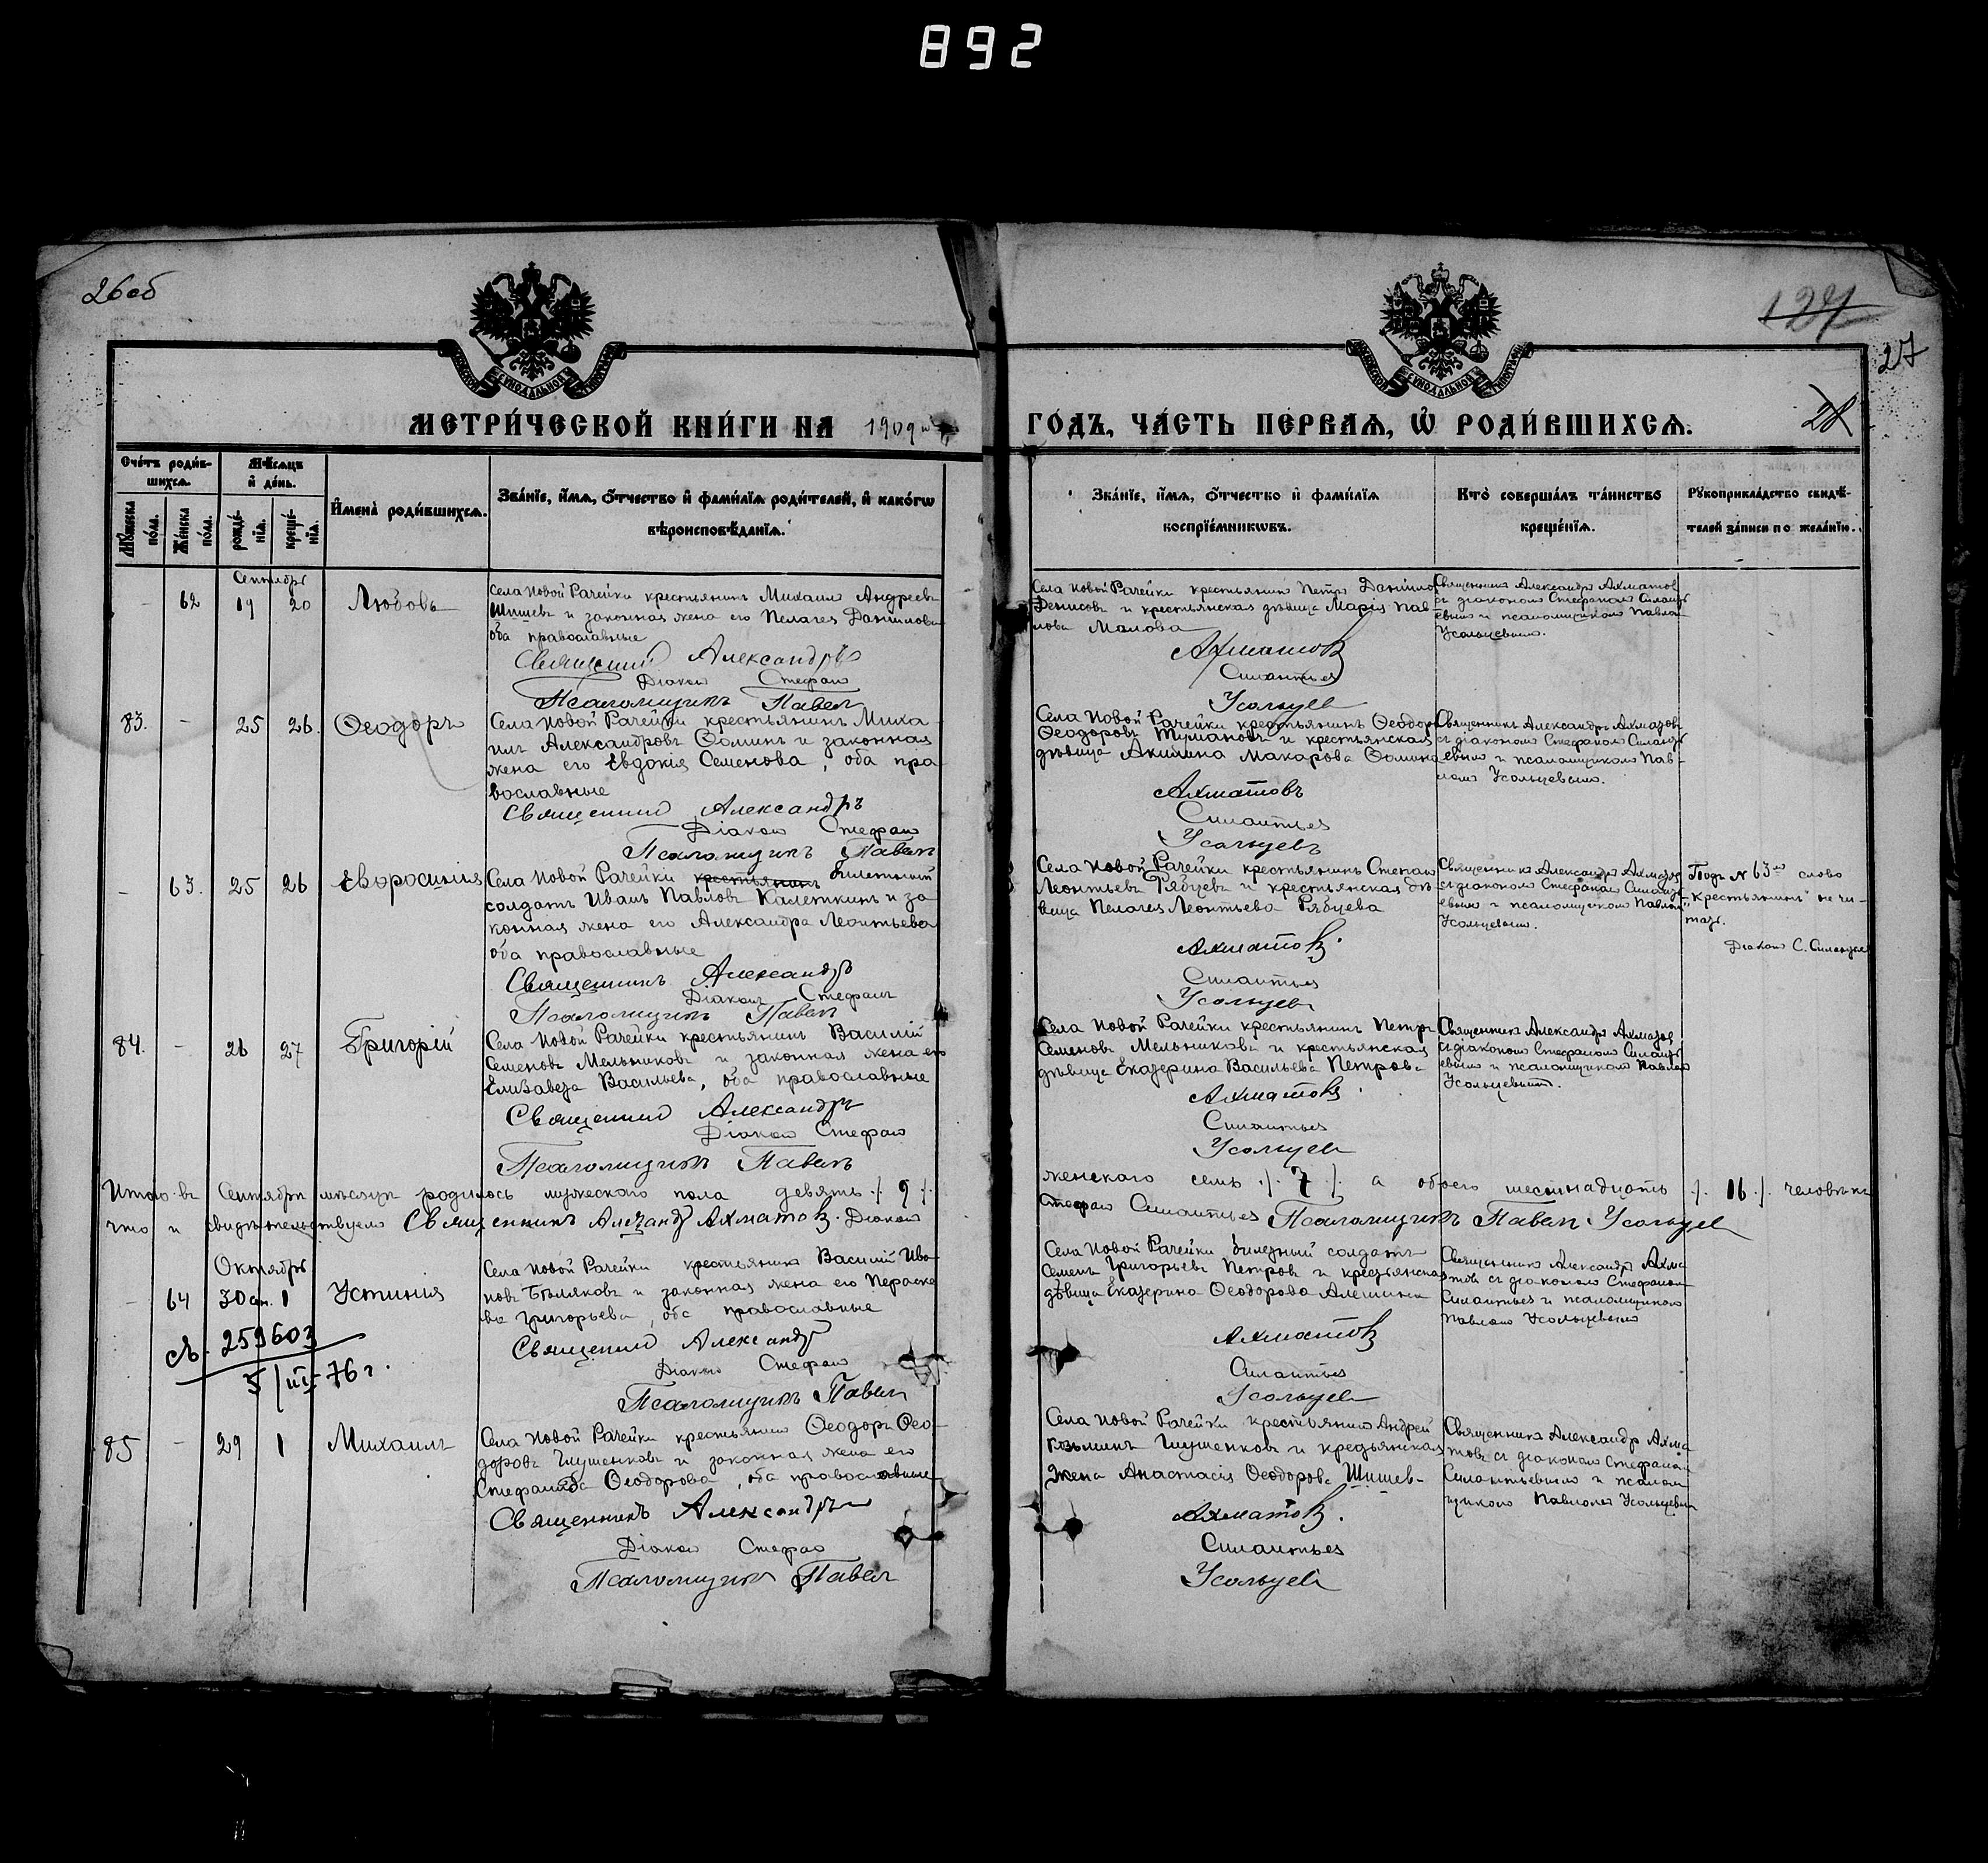 892
26 об
127
27
28
МЕТРИ́ЧЕСКОЙ КНИ́ГИ НА 1909 й
ГО́ДЪ, ЧА́СТЬ ПЕ́РВАѦ, Ѡ҆ РОДИ́ВШИХСѦ.
Сче́тъ роди́в-
шихсѧ.
Мѣ́сѧцъ
и҆ де́нь.
И҆мена̀ роди́вшихсѧ.
Зва́нїе, и҆́мѧ, ѻ҆́тчество и҆ фами́лїѧ роди́телей, и҆ како́гѡ
вѣроисповѣ́данїѧ.
Му́жеска по́ла.
Же́нска по́ла.
рожде́-нїѧ.
креще́-нїѧ.
Зва́нїе, и҆́мѧ, ѻ҆́тчество и҆ фами́лїѧ
воспрїе́мникѡвъ.
Кто̀ соверша́лъ та́инство
креще́нїѧ.
Рукоприкла́дство свидѣ́-
телей за́писи по жела́нїю.
Сентябрь
– 62 19 20 Любовь
Села Новой Рачейки крестьянинъ Михаилъ Андреевъ
Шишевъ и законная жена его Пелагея Данилова
оба православные
Священникъ Александръ
Діаконъ Стефанъ
Псаломщикъ Павелъ
Села Новой Рачейки крестьянинъ Петръ Данилов
Денисовъ и крестьянская дѣвица Марія Пав-
лова Малова
Ахматовъ
Силантьев
Усольцев
Священникъ Александръ Ахматов
съ діакономъ Стефаномъ Силанть
евымъ и псаломщикомъ Павлом
Усольцевымъ.
83. – 25 26. Ѳеодоръ
Села Новой Рачейки крестьянинъ Миха-
илъ Александровъ Ѳоминъ и законная
жена его Евдокия Семенова, оба пра
вославные
Священникъ Александръ
Діаконъ Стефанъ
Псаломщикъ Павелъ
Села Новой Рачейки крестьянинъ Ѳеодоръ
Ѳеодоровъ Тумановъ и крестьянская
дѣвица Акилина Макарова Ѳомина
Ахматовъ
Силантьев
Усольцевъ
Священникъ Александръ Ахматовъ
съ діакономъ Стефаномъ Силанть
евымъ и псаломщикомъ Пав-
ломъ Усольцевымъ.
– 63. 25 26 Евфросинія
Села Новой Рачейки крестьянинъ билетный
солдатъ Иванъ Павловъ Калеткинъ и за
конная жена его Александра Леонтьева
оба православные
Священникъ Александръ
Діаконъ Стефанъ
Псаломщикъ Павелъ
Села Новой Рачейки крестьянинъ Степанъ
Леонтьевъ Рябцевъ и крестьянская дѣ
вица Пелагея Леонтьева Рябцева
Ахматовъ.
Силантьев
Усольцевъ
Священникъ Александръ Ахматов
съ діакономъ Стефаномъ Силанть
евымъ и псаломщикомъ Павлом
Усольцевымъ.
Подъ № 63мъ слово
„крестьянинъ" не чи-
тать.
Діаконъ С. Силантьев
84. – 26 27 Григорій
Села Новой Рачейки крестьянинъ Василій
Семеновъ Мельниковъ и законная жена его
Елизавета Васильева, оба православные
Священникъ Александръ
Діаконъ Стефанъ
Псаломщикъ Павелъ
Села Новой Рачейки крестьянинъ Петръ
Семеновъ Мельниковъ и крестьянская
дѣвица Екатерина Васильева Петрова
Ахматовъ
Силантьев
Усольцев
Священникъ Александръ Ахматов
съ діакономъ Стефаномъ Силанть
евымъ и псаломщикомъ Павлом
Усольцевымъ.
Итого въ Сентябрѣ мѣсяцѣ родилось мужескаго пола девять ./. 9 ./.
женскаго семь ./. 7 ./. а обоего шестнадцать ./. 16 ./. человѣкъ
что и свидѣтельствуемъ Священникъ Александръ Ахматовъ. Діаконъ
Стефанъ Силантьев Псаломщикъ Павелъ Усольцев
Октябрь
– 64 30 сен. 1 Устинія
Села Новой Рачейки крестьянинъ Василій Ива-
новъ Бѣляковъ и законная жена его Параске
ва Григорьева, оба православные
Священникъ Александръ
Діаконъ Стефанъ
Псаломщикъ Павелъ
Села Новой Рачейки билетный солдатъ
Семенъ Григорьевъ Петровъ и крестьянская
дѣвица Екатерина Ѳеодорова Алешина
Ахматовъ
Силантьев
Усольцев
Священникъ Александръ Ахма-
товъ съ діакономъ Стефаномъ
Силантьев и псаломщикомъ
Павломъ Усольцевымъ
св. 259603
5/III-76 г.
85 – 29 1 Михаилъ
Села Новой Рачейки крестьянинъ Ѳеодоръ Ѳео-
доровъ Глушенковъ и законная жена его
Стефанида Ѳеодорова, оба православные
Священникъ Александръ
Діаконъ Стефанъ
Псаломщикъ Павелъ
Села Новой Рачейки крестьянинъ Андрей
Козминъ Глушенковъ и крестьянская
жена Анастасія Ѳеодорова Шишев-
Ахматовъ.
Силантьев
Усольцев
Священникъ Александръ Ахма-
товъ съ діакономъ Стефаномъ
Силантьевымъ и псалом
щикомъ Павломъ Усольцевым